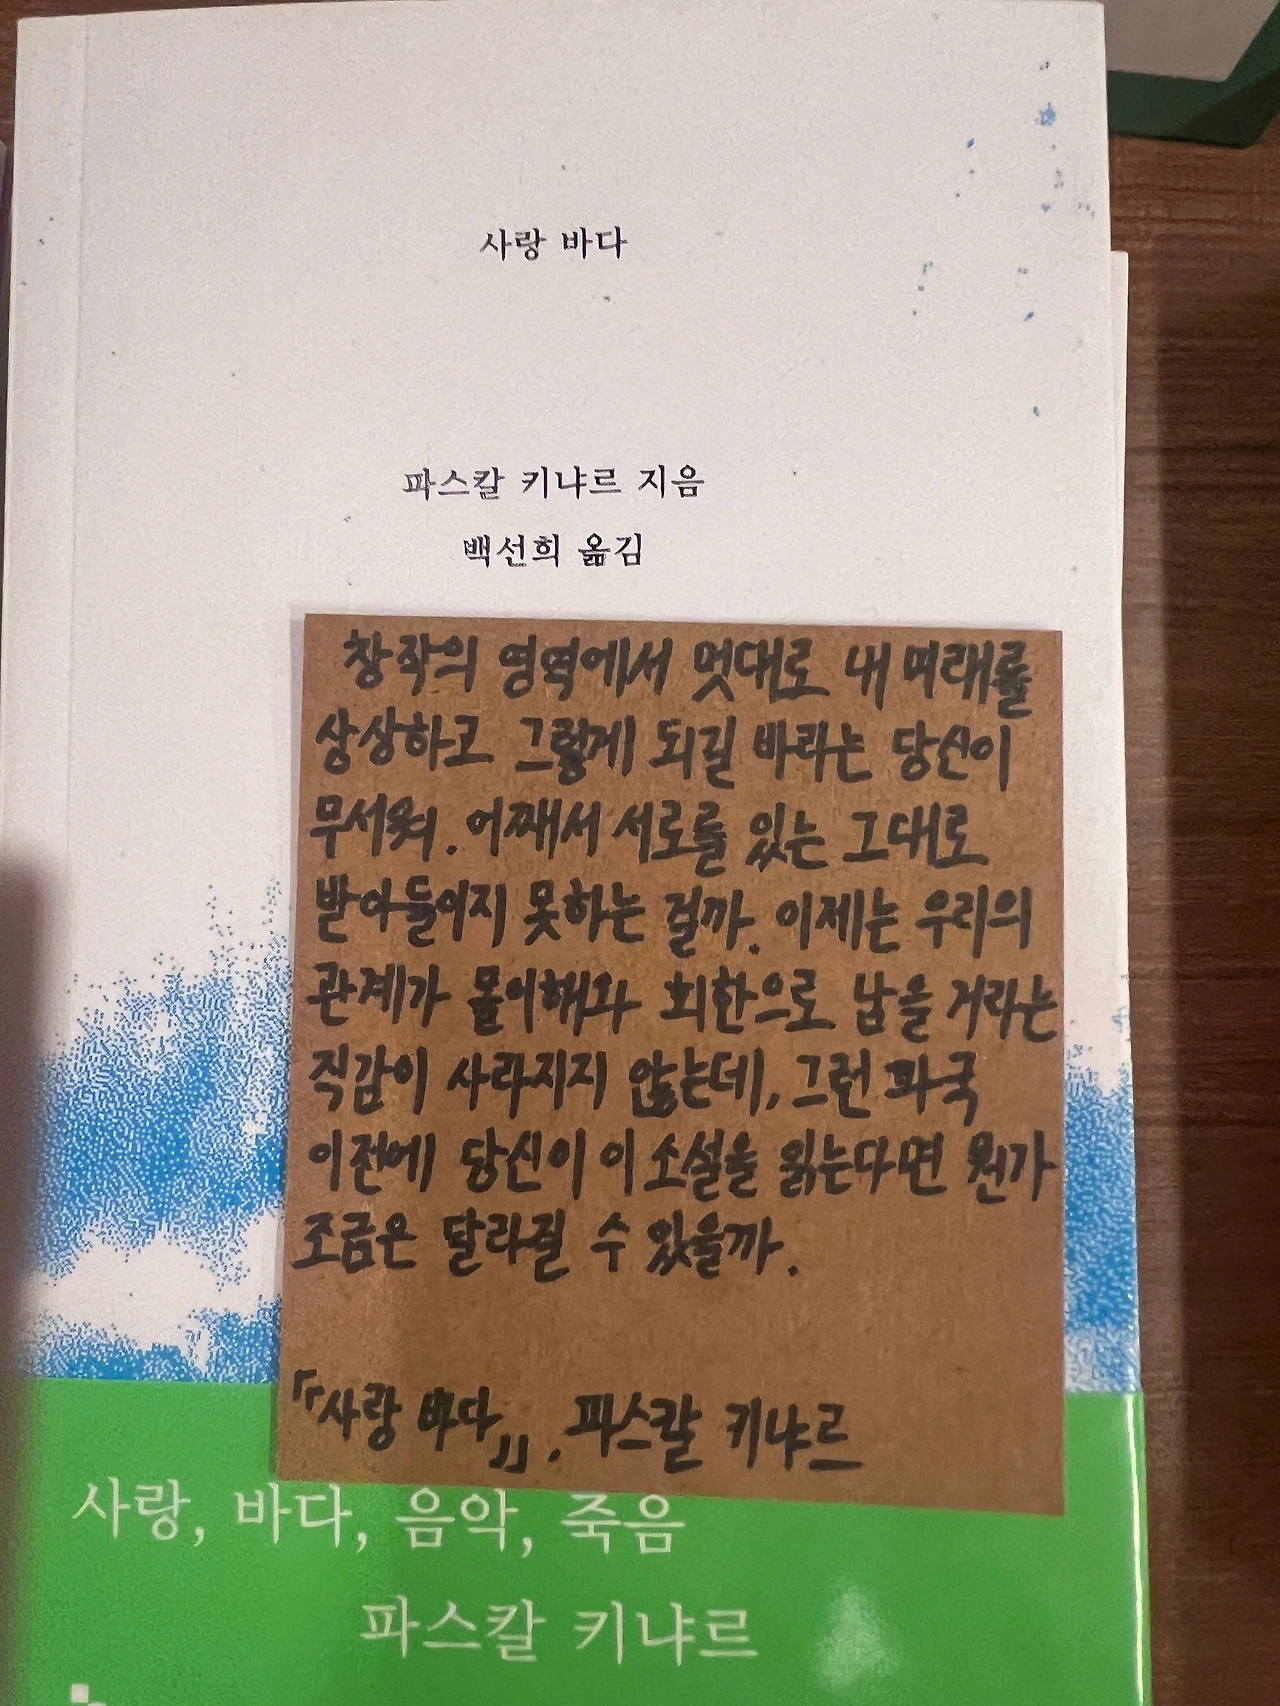 사랑 바다
파스칼 키냐르 지음
백선희 옮김
창작의 영역에서 멋대로 내 미래를
상상하고 그렇게 되길 바라는 당신이
무서워. 어째서 서로를 있는 그대로
받아들이지 못하는 걸까. 이제는 우리의
관계가 몰이해와 회한으로 남을 거라는
직감이 사라지지 않는데, 그런 파국
이전에 당신이 이 소설을 읽는다면 뭔가
조금은 달라질 수 있을까.
『사랑 바다』, 파스칼 키냐르
사랑, 바다, 음악, 죽음
파스칼 키냐르